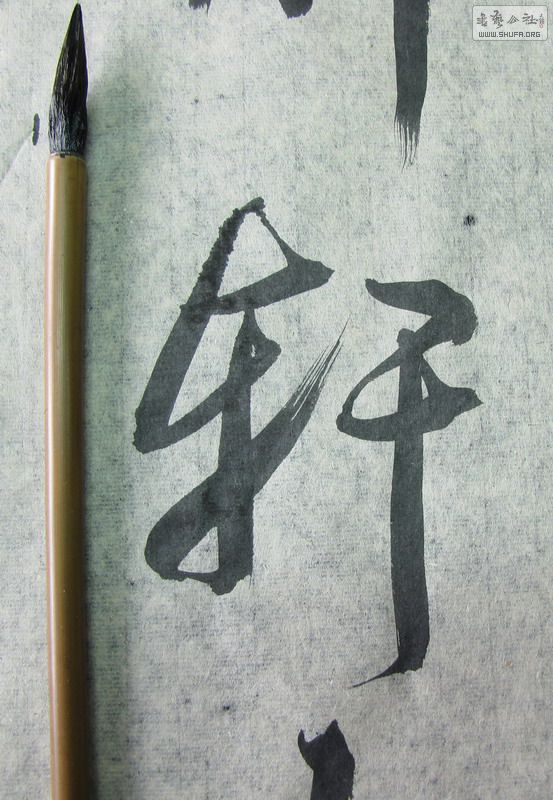 书艺公社
WWW.SHUFA.ORG
轩